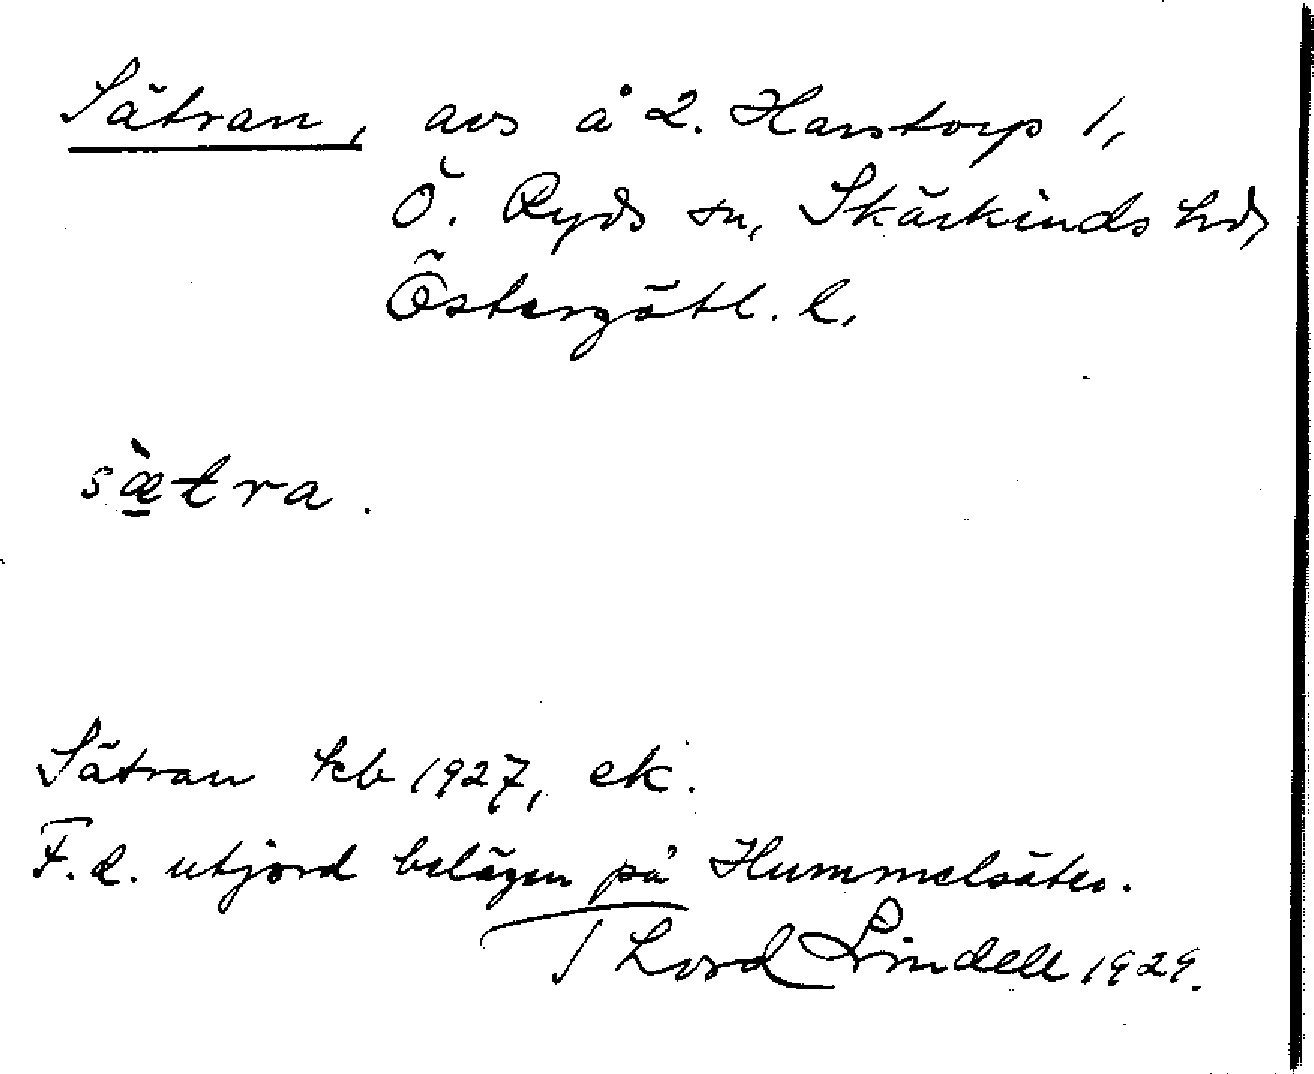 Sätran, avs å 2. Harstorp 1,
Ö. Ryds sn, Skärkinds hd,
Östergötl. l.
sæ̠̀tra.
Sätran kb 1927, ek.
F.d. utjord belägen på Hummelsäter.
Thord Lindell 1929.